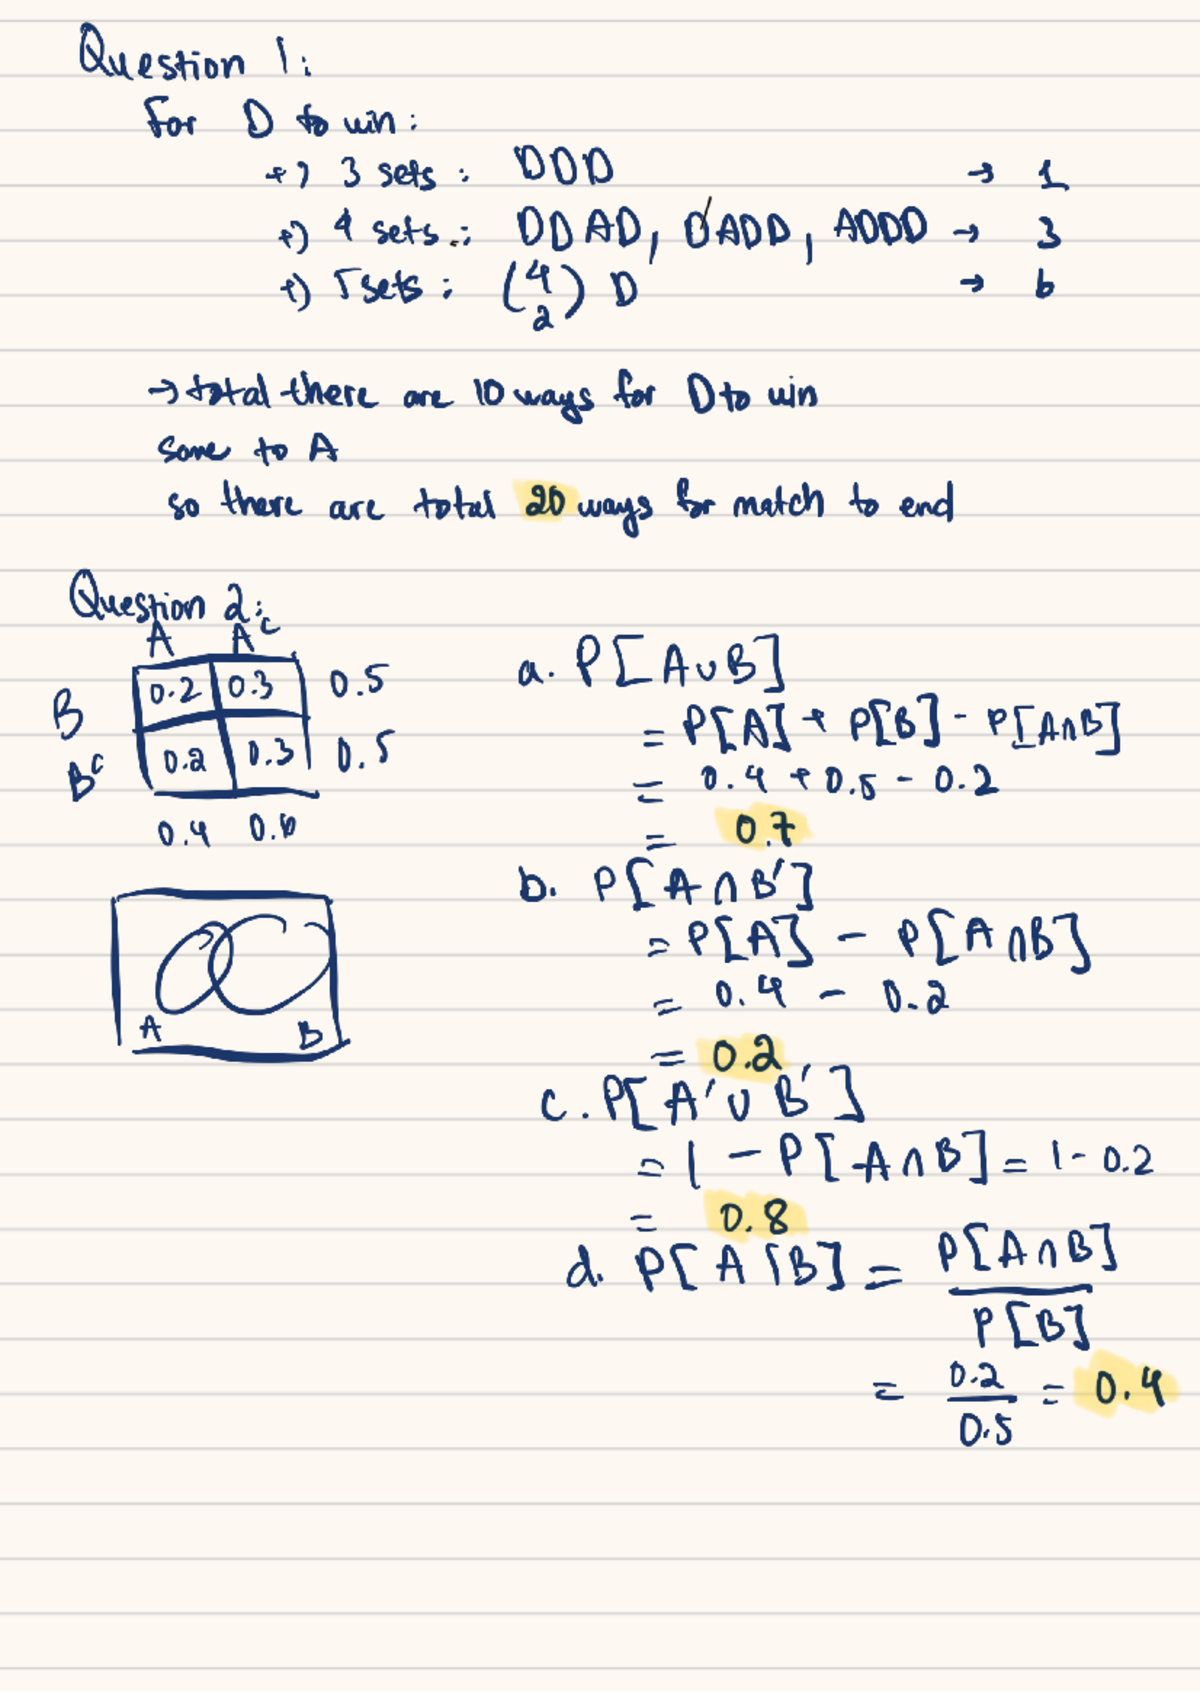 Question 1:
For D to win:
+) 3 sets: DDD → 1
+) 4 sets: DDAD, DADD, ADDD → 3
+) 5 sets: (4 2) D → 6
→ total there are 10 ways for D to win
same to A
so there are total 20 ways for match to end
Question 2:
A A^c
B 0.2 0.3 0.5
B^c 0.2 0.3 0.5
0.4 0.6
A B
a. P[A∪B]
= P[A] + P[B] - P[A∩B]
= 0.4 + 0.5 - 0.2
= 0.7
b. P[A∩B']
= P[A] - P[A∩B]
= 0.4 - 0.2
= 0.2
c. P[A'∪B']
= 1 - P[A∩B] = 1 - 0.2
= 0.8
d. P[A|B] = P[A∩B] / P[B]
= 0.2 / 0.5 = 0.4